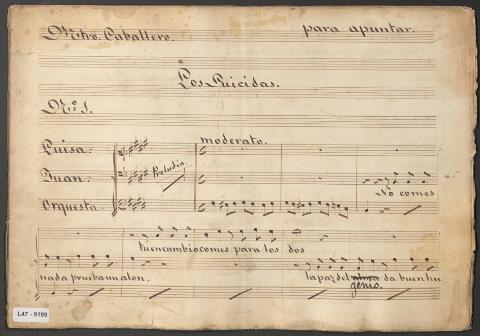 Mtro. Caballero. para apuntar.
Los Suicidas.
Nº 1.
moderato.
Luisa.
Juan. Preludio.
Orquesta.
No comes
tu en cambio comes para los dos
nada prueba un alon. la paz del alma da buen hu
genio.
L47 - 9199